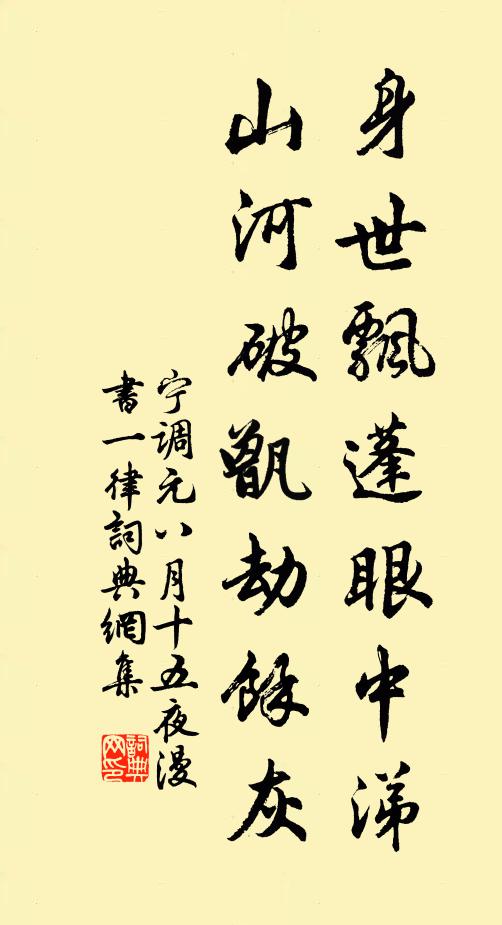 身世飄蓬眼中涕
山河破甑劫餘灰
宁調元八月十五夜漫
書一律詞典網集
詞典
网印